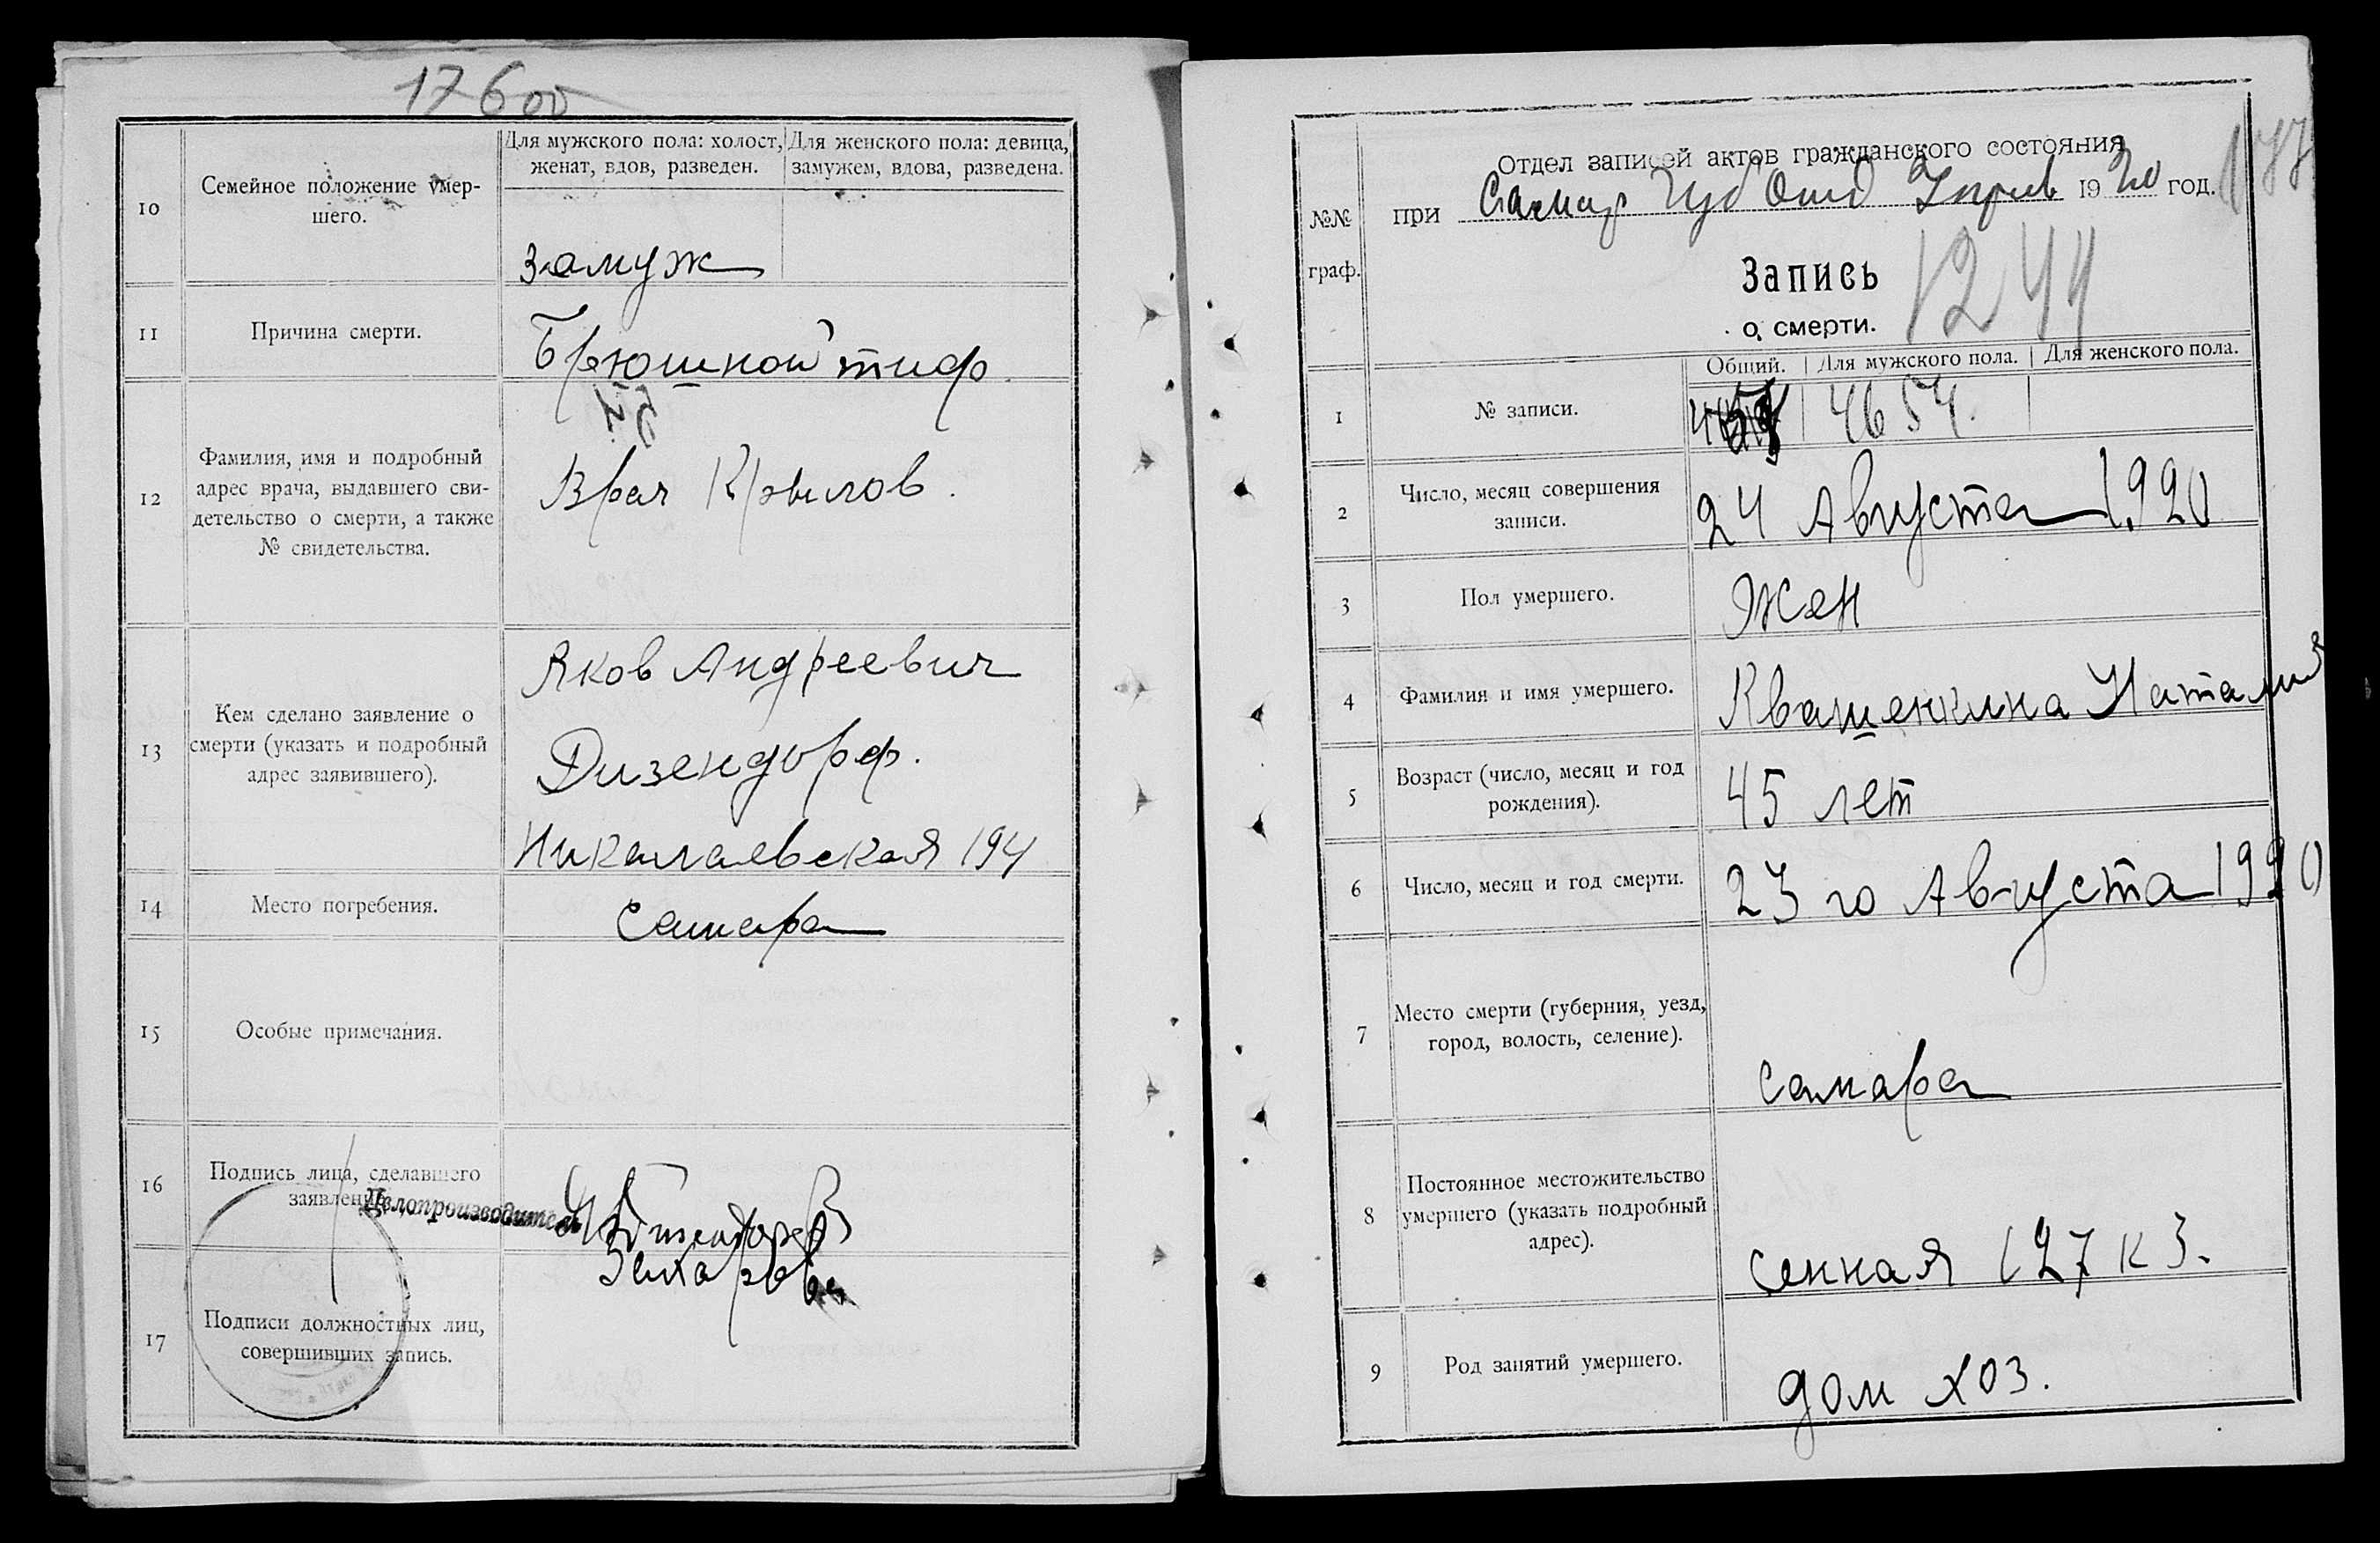 17600
10
Семейное положение умер-
шего.
Для мужского пола: холост,
женат, вдов, разведен.
Для женского пола: девица,
замужем, вдова, разведена.
замуж
11
Причина смерти.
Брюшной тиф.
12
Фамилия, имя и подробный
адрес врача, выдавшего сви-
детельство о смерти, а также
№ свидетельства.
Врач Крылов.
13
Кем сделано заявление о
смерти (указать и подробный
адрес заявившего).
Яков Андреевич
Дизендорф.
Николаевская 194
14
Место погребения.
Самара
15
Особые примечания.
16
Подпись лица, сделавшего
заявление.
Делопроизводитель
Дизендорф
17
Подписи должностных лиц,
совершивших запись.
№№
граф.
Отдел записей актов гражданского состояния
при Самар Губ Отд Управ 1920 год.
177
Запись
о смерти.
1244
Общий.
Для мужского пола.
Для женского пола.
1
№ записи.
4654.
2
Число, месяц совершения
записи.
24 Августа 1920
3
Пол умершего.
Жен
4
Фамилия и имя умершего.
Квашенкина Наталия
5
Возраст (число, месяц и год
рождения).
45 лет
6
Число, месяц и год смерти.
23 го Августа 1920
7
Место смерти (губерния, уезд,
город, волость, селение).
Самара
8
Постоянное местожительство
умершего (указать подробный
адрес).
Сенная 127 к 3.
9
Род занятий умершего.
дом хоз.